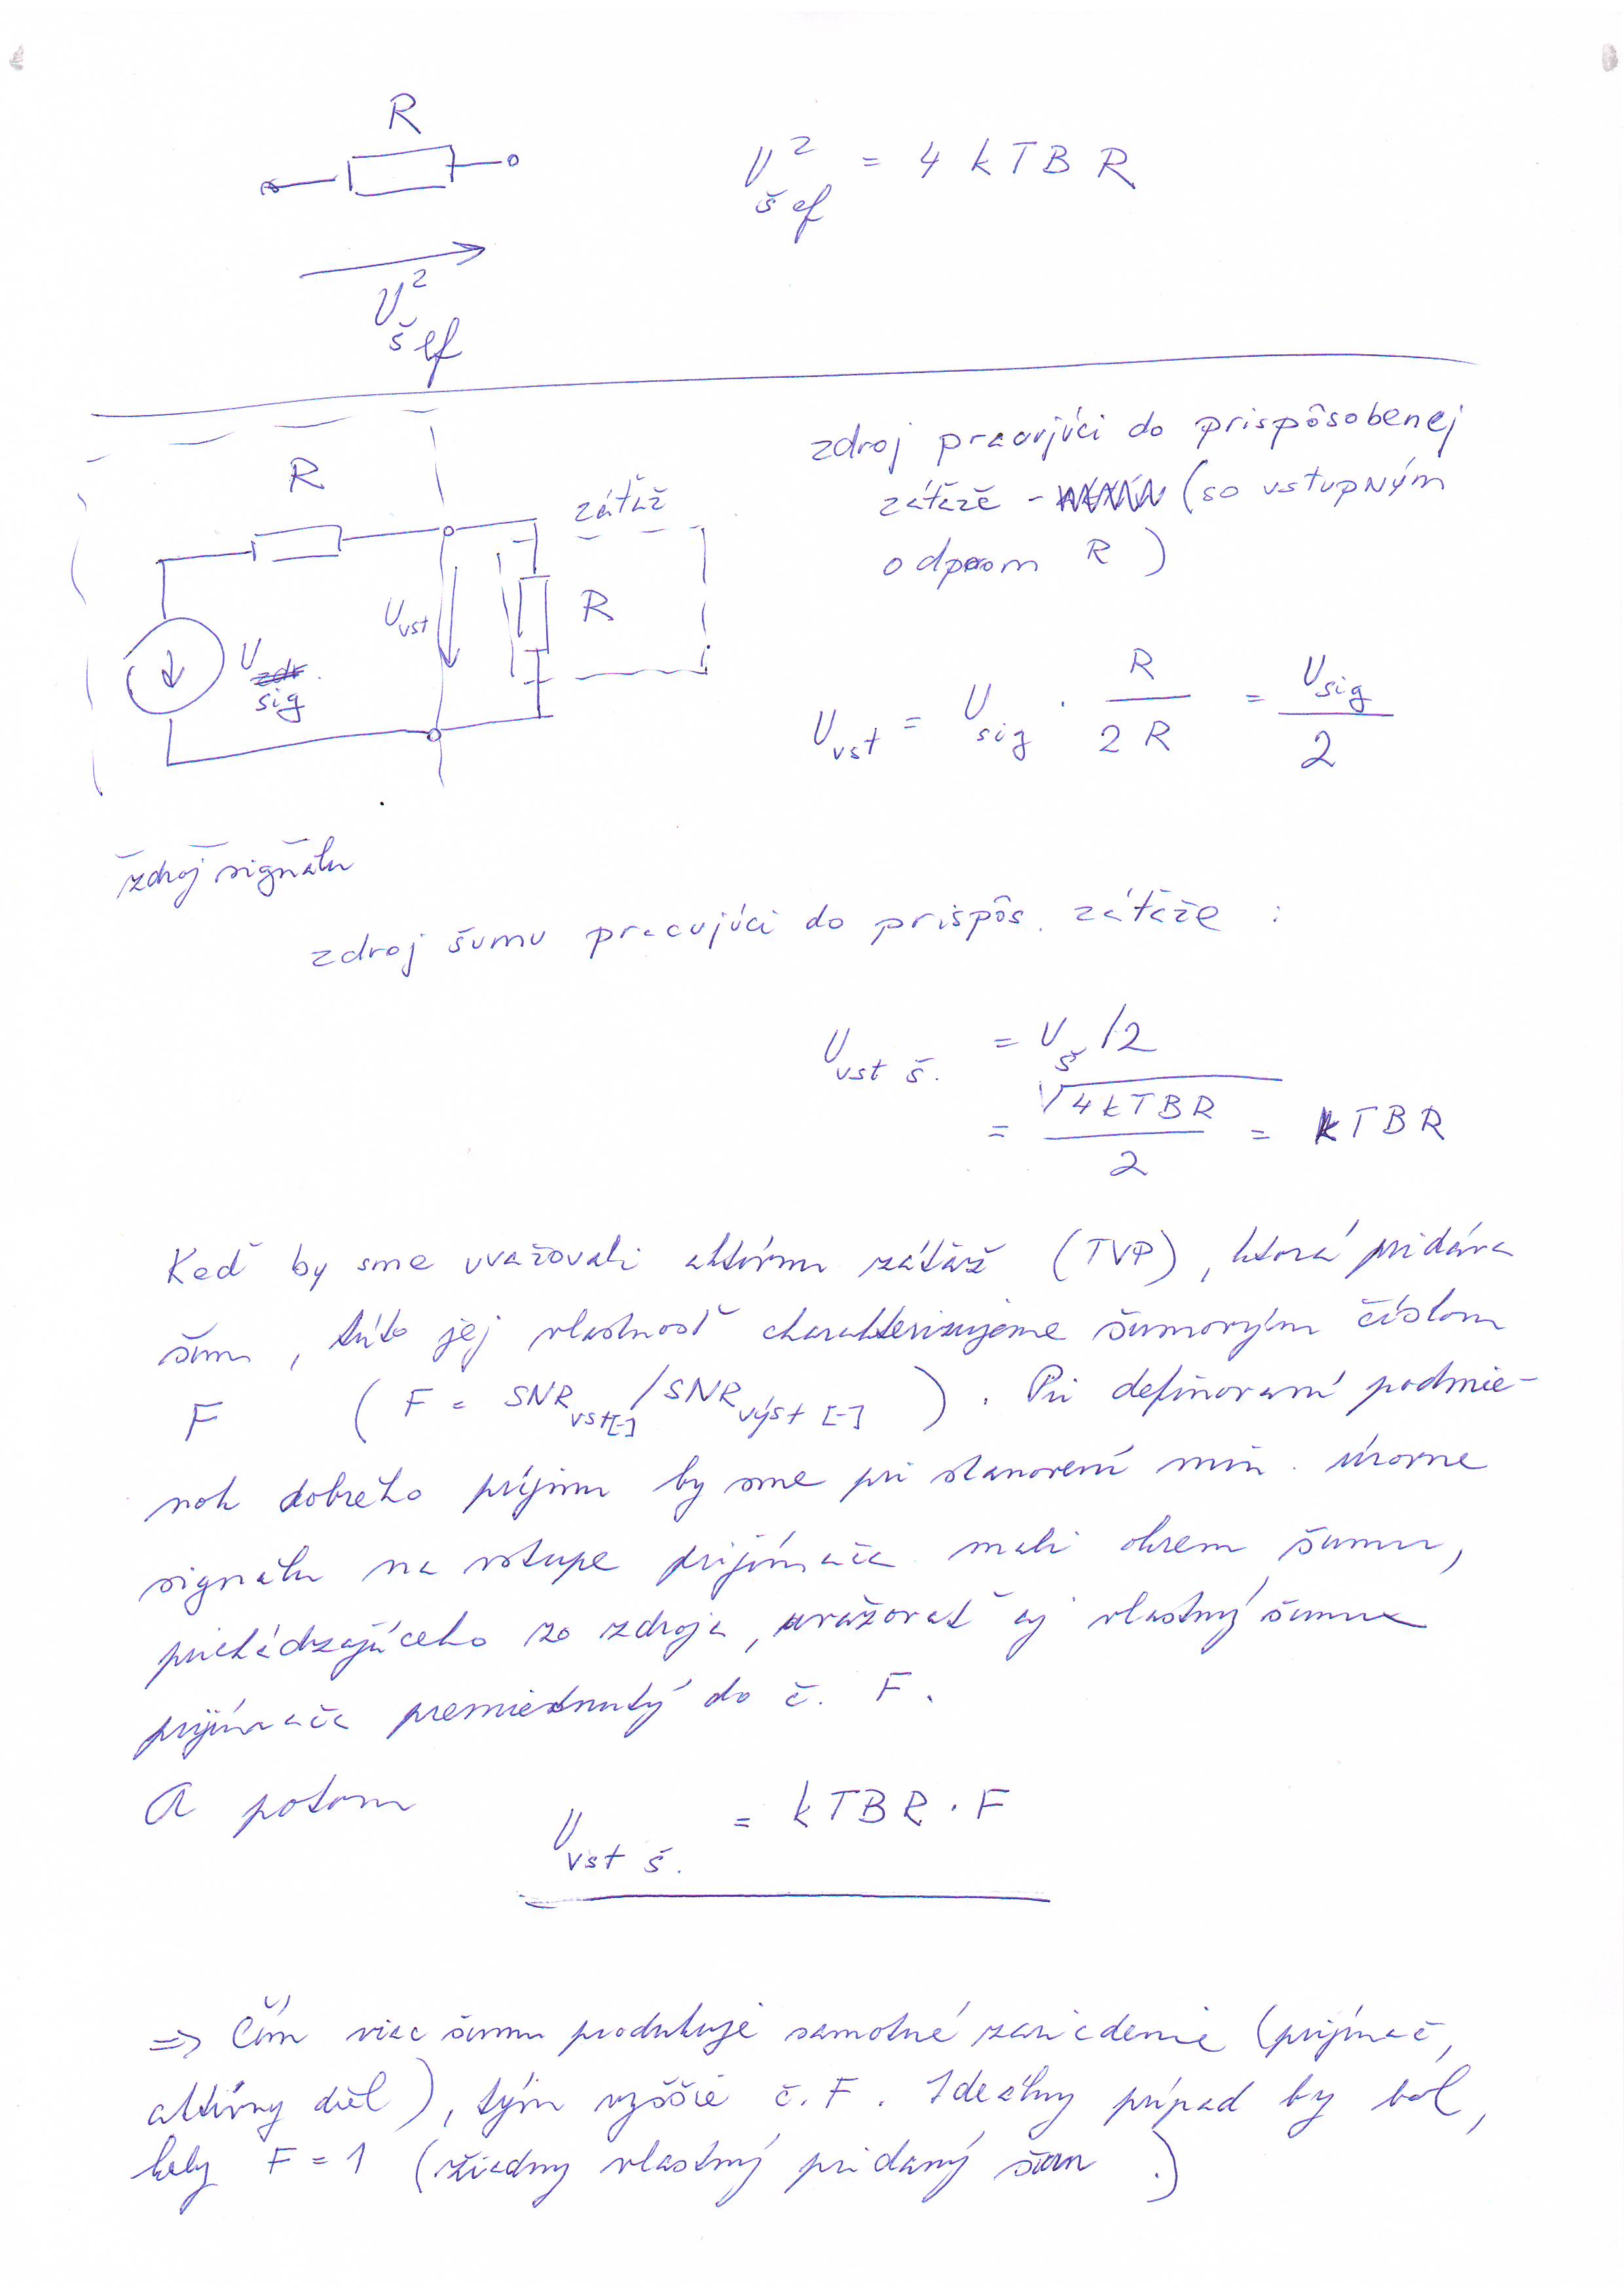 R
U² šef = 4 kTBR
U² šef
zdroj pracujúci do prispôsobenej
záťaže - (so vstupným
odporom R)
R
záťaž
U vst
R
U sig
U vst = U sig · R / 2R = U sig / 2
zdroj signálu
zdroj šumu pracujúci do prispôs. záťaže :
U vst š. = U š /2
= √4kTBR / 2 = kTBR
Keď by sme uvažovali aktívnu záťaž (TVP), ktorá pridáva
šum, túto jej vlastnosť charakterizujeme šumovým číslom
F (F = SNR vst[-] / SNR výst [-]). Pri definovaní podmie-
nok dobrého príjmu by sme pri stanovení min. úrovne
signálu na vstupe prijímača mali okrem šumu,
prichádzajúceho zo zdroja, uvažovať aj vlastný šum
prijímača premietnutý do č. F.
A potom
U vst š. = kTBR · F
=> Čím viac šumu produkuje samotné zariadenie (prijímač,
aktívny diel), tým vyššie č. F. Ideálny prípad by bol,
keby F = 1 (žiadny vlastný pridaný šum.)